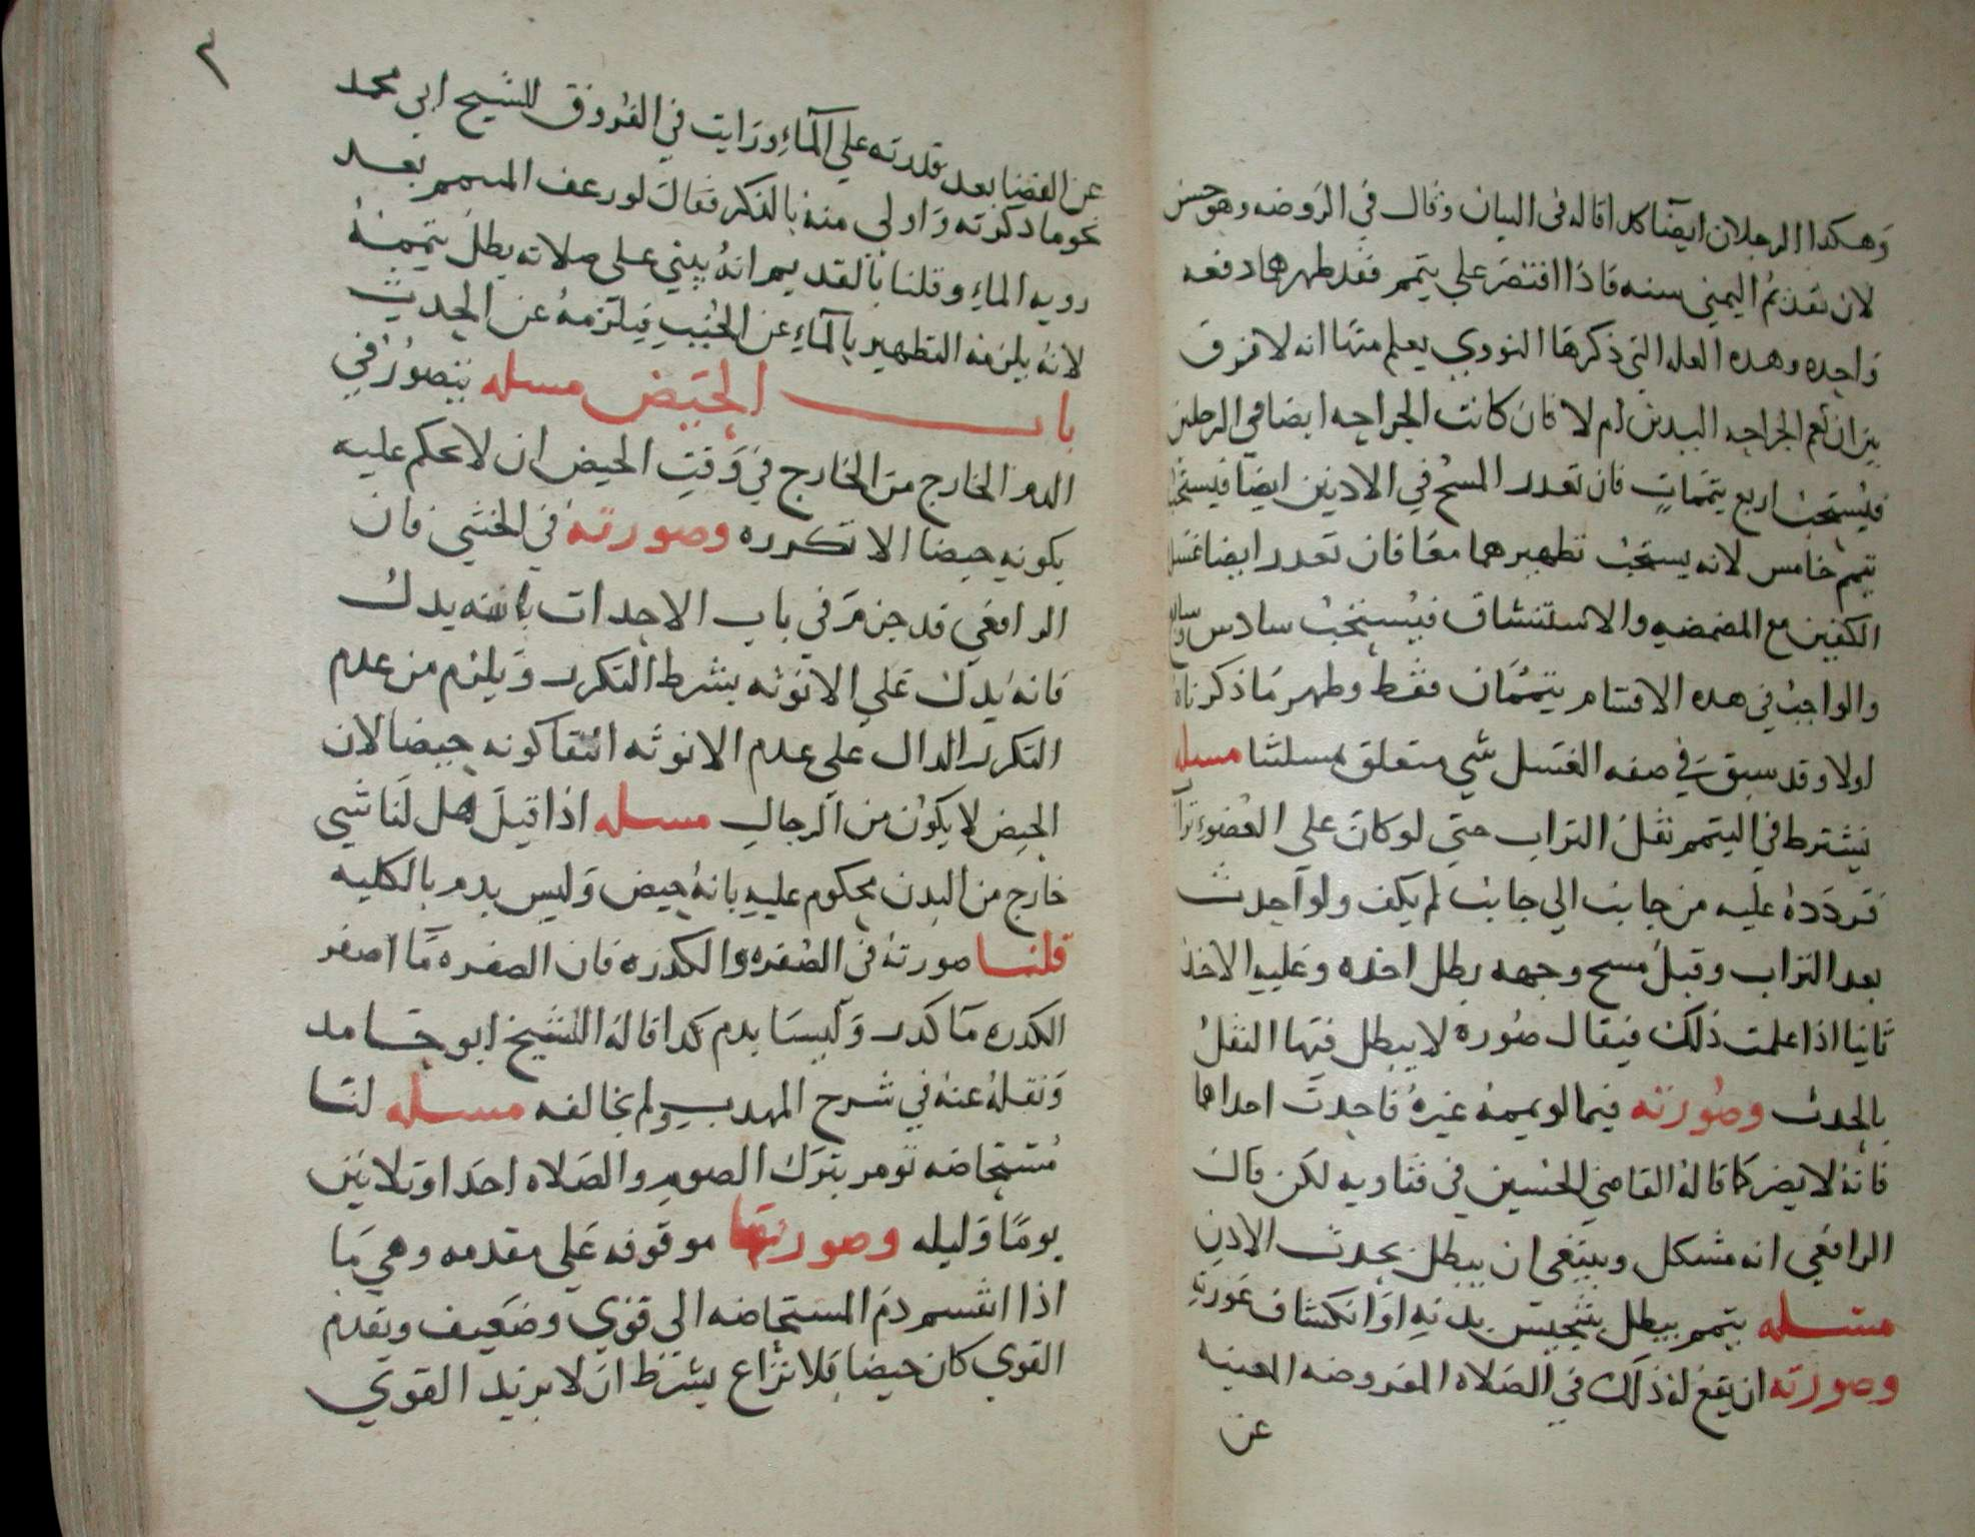 وهكدا الرجلان ايضا كدا قاله في البيان وقال في الروضه وهو حسن
لان تقديم اليمني سنه فاذا اقتصر علي تيمم فقد طهرهما دفعه
واحده وهده العله التي ذكرها النووي يعلم منها انه لا فرق
بين ان تعم الجراحه اليدين ام لا فان كانت الجراحه ايضا في الرجلين
فيستحب اربع تيممات فان تعدر المسح في الادنين ايضا فيستحب
تيمم خامس لانه يستحب تطهيرهما معا فان تعدر ايضا غسل
الكفين مع المضمضه والاستنشاق فيستحب سادس
والواجب في هده الاقسام تيممان فقط وظهر ما ذكرناه
اولا وقد سبق في صفه الغسل شي متعلق بمسلتنا مسله
يشترط في التيمم نقل التراب حتي لو كان علي العضو
فردده عليه من جانب الي جانب لم يكف ولو احدث
بعد التراب وقبل مسح وجهه بطل اخده وعليه الاخذ
ثانيا اذا علمت ذلك فيقال صوره لا يبطل فيها النقل
بالحدث وصورته فيما لو يممه غيره فاحدث احداهما
فانه لا يضر كما قاله القاضي الحسين في فتاويه لكن قال
الرافعي انه مشكل وينبغي ان يبطل بحدث الاذن
مسله تيمم يبطل بتنجيس بدنه او انكشاف عورته
وصورته ان يقع له ذلك في الصلاه المفروضه المعينه
عن
٣
عن القضا بعد قدرته علي الماء ورايت في الفروق للشيخ ابي محمد
نحو ما دكرته واولي منه بالذكر فقال لو رعف المتيمم بعد
رويه الماء وقلنا بالقديم انه يبني على صلاته بطل تيممه
لانه يلزمه التطهير بالماء عن الخبث فيلزمه عن الحدث
باب الحيض مسله يتصور في
الدم الخارج من الخارج في وقت الحيض ان لا يحكم عليه
بكونه حيضا الا بتكرره وصورته في الخنثي فان
الرافعي قد جزم في باب الاحداث يدل
فانه يدل علي الانوثه بشرط التكرر ويلزم من عدم
التكرر الدال علي عدم الانوثه انتفا كونه حيضا لان
الحيض لا يكون من الرجال مسله اذا قيل هل لنا شي
خارج من البدن محكوم عليه بانه حيض وليس بدم بالكليه
قلنا صورته في الصفره والكدره فان الصفره ما اصفر
الكدره ما كدر وليسا بدم كدا قاله الشيخ ابو حامد
ونقله عنه في شرح المهدب ولم يخالفه مسله لنا
مستحاضه تومر بترك الصوم والصلاه احدا وتلاثين
يوما وليله وصورتها موقوفه علي مقدمه وهي ما
اذا انقسم دم المستحاضه الي قوي وضعيف وتقدم
القوي كان حيضا بلا نزاع بشرط ان لا يزيد القوي